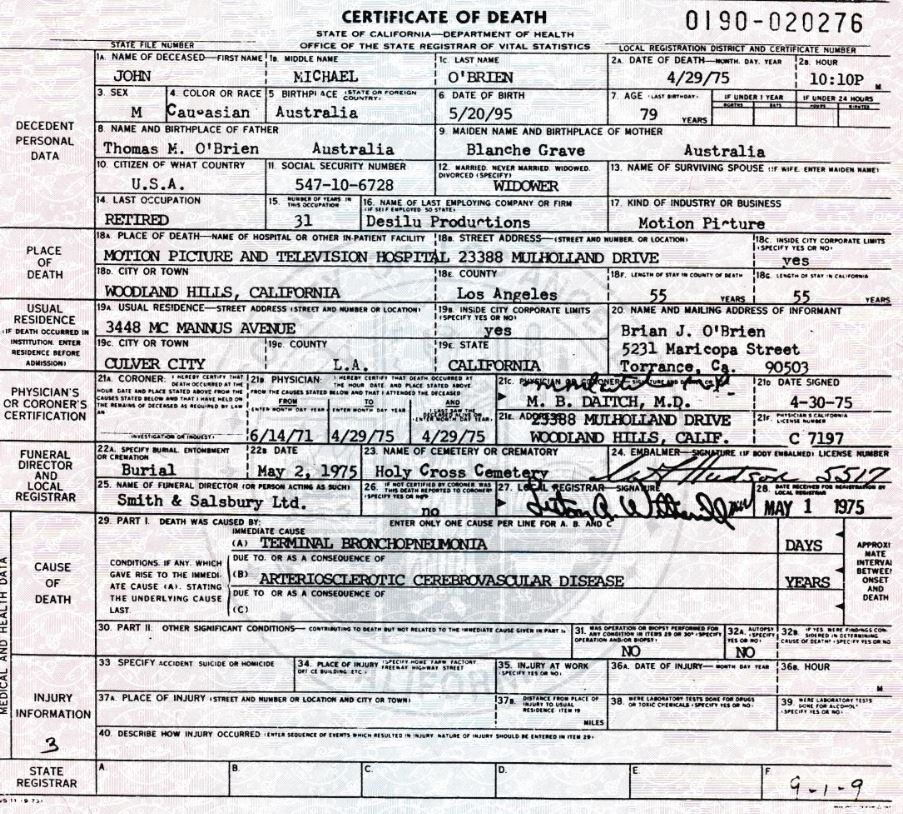 CERTIFICATE OF DEATH
0190-020276
STATE OF CALIFORNIA—DEPARTMENT OF HEALTH
STATE FILE NUMBER
OFFICE OF THE STATE REGISTRAR OF VITAL STATISTICS
LOCAL REGISTRATION DISTRICT AND CERTIFICATE NUMBER
DECEDENT PERSONAL DATA
1A. NAME OF DECEASED—FIRST NAME 1B. MIDDLE NAME 1C. LAST NAME 2A. DATE OF DEATH—MONTH, DAY, YEAR 2B. HOUR
JOHN MICHAEL O'BRIEN 4/29/75 10:10P M
3. SEX 4. COLOR OR RACE 5. BIRTHPLACE (STATE OR FOREIGN COUNTRY) 6. DATE OF BIRTH 7. AGE (LAST BIRTHDAY) IF UNDER 1 YEAR IF UNDER 24 HOURS
M Caucasian Australia 5/20/95 79 YEARS
8. NAME AND BIRTHPLACE OF FATHER 9. MAIDEN NAME AND BIRTHPLACE OF MOTHER
Thomas M. O'Brien Australia Blanche Grave Australia
10. CITIZEN OF WHAT COUNTRY 11. SOCIAL SECURITY NUMBER 12. MARRIED, NEVER MARRIED, WIDOWED, DIVORCED (SPECIFY) 13. NAME OF SURVIVING SPOUSE (IF WIFE, ENTER MAIDEN NAME)
U.S.A. 547-10-6728 WIDOWER
14. LAST OCCUPATION 15. NUMBER OF YEARS IN THIS OCCUPATION 16. NAME OF LAST EMPLOYING COMPANY OR FIRM (IF SELF EMPLOYED SO STATE) 17. KIND OF INDUSTRY OR BUSINESS
RETIRED 31 Desilu Productions Motion Picture
PLACE OF DEATH
18A. PLACE OF DEATH—NAME OF HOSPITAL OR OTHER IN-PATIENT FACILITY 18B. STREET ADDRESS—(STREET AND NUMBER, OR LOCATION) 18C. INSIDE CITY CORPORATE LIMITS (SPECIFY YES OR NO)
MOTION PICTURE AND TELEVISION HOSPITAL 23388 MULHOLLAND DRIVE yes
18D. CITY OR TOWN 18E. COUNTY 18F. LENGTH OF STAY IN COUNTY OF DEATH 18G. LENGTH OF STAY IN CALIFORNIA
WOODLAND HILLS, CALIFORNIA Los Angeles 55 YEARS 55 YEARS
USUAL RESIDENCE
(IF DEATH OCCURRED IN INSTITUTION, ENTER RESIDENCE BEFORE ADMISSION)
19A. USUAL RESIDENCE—STREET ADDRESS (STREET AND NUMBER OR LOCATION) 19B. INSIDE CITY CORPORATE LIMITS (SPECIFY YES OR NO) 20. NAME AND MAILING ADDRESS OF INFORMANT
3448 MC MANNUS AVENUE yes
19C. CITY OR TOWN 19D. COUNTY 19E. STATE
CULVER CITY L.A. CALIFORNIA
Brian J. O'Brien
5231 Maricopa Street
Torrance, Ca. 90503
PHYSICIAN'S OR CORONER'S CERTIFICATION
21A. CORONER: I HEREBY CERTIFY THAT DEATH OCCURRED AT THE HOUR DATE AND PLACE STATED ABOVE FROM THE CAUSES STATED BELOW AND THAT I HAVE HELD ON THE REMAINS OF DECEASED AS REQUIRED BY LAW AN
INVESTIGATION OR INQUEST
21B. PHYSICIAN: I HEREBY CERTIFY THAT DEATH OCCURRED AT THE HOUR, DATE, AND PLACE STATED ABOVE FROM THE CAUSES STATED BELOW AND THAT I ATTENDED THE DECEASED
FROM TO AND LAST SAW THE DECEASED ALIVE ON
ENTER MONTH DAY YEAR ENTER MONTH DAY YEAR ENTER MONTH DAY YEAR
6/14/71 4/29/75 4/29/75
21C. PHYSICIAN OR CORONER—SIGNATURE AND
M. B. DAITCH, M.D.
21D. DATE SIGNED
4-30-75
21E. ADDRESS
23388 MULHOLLAND DRIVE
WOODLAND HILLS, CALIF.
21F. PHYSICIAN'S CALIFORNIA LICENSE NUMBER
C 7197
FUNERAL DIRECTOR AND LOCAL REGISTRAR
22A. SPECIFY BURIAL, ENTOMBMENT OR CREMATION 22B. DATE 23. NAME OF CEMETERY OR CREMATORY 24. EMBALMER—SIGNATURE (IF BODY EMBALMED) LICENSE NUMBER
Burial May 2, 1975 Holy Cross Cemetery Hudson 5517
25. NAME OF FUNERAL DIRECTOR (OR PERSON ACTING AS SUCH) 26. IF NOT CERTIFIED BY CORONER WAS THIS DEATH REPORTED TO CORONER? (SPECIFY YES OR NO) 27. LOCAL REGISTRAR—SIGNATURE 28. DATE RECEIVED FOR REGISTRATION BY LOCAL REGISTRAR
Smith & Salsbury Ltd. no MAY 1 1975
CAUSE OF DEATH
29. PART I. DEATH WAS CAUSED BY: ENTER ONLY ONE CAUSE PER LINE FOR A, B, AND C
IMMEDIATE CAUSE
(A) TERMINAL BRONCHOPNEUMONIA DAYS
CONDITIONS, IF ANY, WHICH GAVE RISE TO THE IMMEDIATE CAUSE (A), STATING THE UNDERLYING CAUSE LAST
DUE TO, OR AS A CONSEQUENCE OF
(B) ARTERIOSCLEROTIC CEREBROVASCULAR DISEASE YEARS
DUE TO, OR AS A CONSEQUENCE OF
(C)
APPROXIMATE INTERVAL BETWEEN ONSET AND DEATH
30. PART II. OTHER SIGNIFICANT CONDITIONS—CONTRIBUTING TO DEATH BUT NOT RELATED TO THE IMMEDIATE CAUSE GIVEN IN PART I 31. WAS OPERATION OR BIOPSY PERFORMED FOR ANY CONDITION IN ITEMS 29 OR 30? (SPECIFY OPERATION AND/OR BIOPSY) 32A. AUTOPSY (SPECIFY YES OR NO) 32B. IF YES WERE FINDINGS CONSIDERED IN DETERMINING CAUSE OF DEATH? (SPECIFY YES OR NO)
NO NO
MEDICAL AND HEALTH DATA
INJURY INFORMATION
3
33. SPECIFY ACCIDENT SUICIDE OR HOMICIDE 34. PLACE OF INJURY (SPECIFY HOME FARM FACTORY FREEWAY HIGHWAY STREET OFFICE BUILDING ETC.) 35. INJURY AT WORK (SPECIFY YES OR NO) 36A. DATE OF INJURY—MONTH DAY YEAR 36B. HOUR
M
37A. PLACE OF INJURY (STREET AND NUMBER OR LOCATION AND CITY OR TOWN) 37B. DISTANCE FROM PLACE OF INJURY TO USUAL RESIDENCE ITEM 19 MILES 38. WERE LABORATORY TESTS DONE FOR DRUGS OR TOXIC CHEMICALS (SPECIFY YES OR NO) 39. WERE LABORATORY TESTS DONE FOR ALCOHOL? (SPECIFY YES OR NO)
40. DESCRIBE HOW INJURY OCCURRED (ENTER SEQUENCE OF EVENTS WHICH RESULTED IN INJURY NATURE OF INJURY SHOULD BE ENTERED IN ITEM 29)
STATE REGISTRAR
A. B. C. D. E. F.
9-1-9